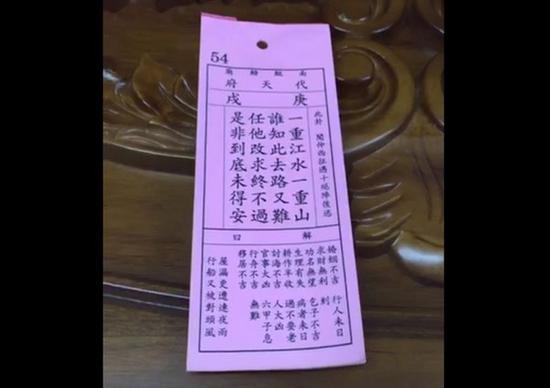 54
南鯤鯓廟
代天府
庚戌
此卦 聞仲西征遇十絕陣後逃
一重江水一重山
誰知此去路又難
任他改求終不過
是非到底未得安
解曰
婚姻不吉 行人未日
求財無利 到
功名無望 包子不吉
生理有失 病者未日
耕作半收 過不要老
討海不吉 人大凶
官事大凶 六甲子息
行舟不吉 無難
移居不吉
屋漏更遭連夜雨
行船又被對頭風